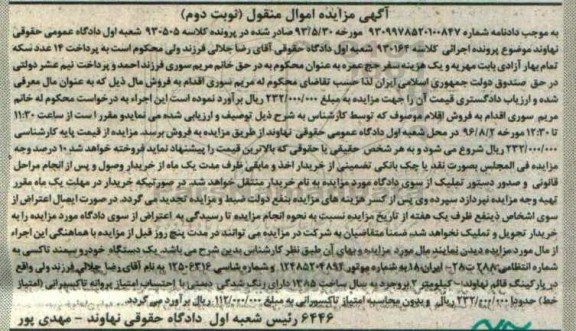 آگهی مزایده اموال منقول (نوبت دوم)
به موجب دادنامه شماره ۹۳۰۹۹۷۸۵۲۰۱۰۰۸۴۷ مورخه ۹۳/۵/۳۰ صادر شده در پرونده کلاسه ۹۳۰۵۰۵ شعبه اول دادگاه عمومی حقوقی
نهاوند موضوع پرونده اجرائی کلاسه ۹۳۰۱۶۴ شعبه اول دادگاه حقوقی آقای رضا جلالی فرزند ولی محکوم است به پرداخت ۱۴ عدد سکه
تمام بهار آزادی بابت مهریه و یک هزینه سفر حج عمره به عنوان محکوم به در حق خانم مریم سوری فرزند احمد و پرداخت نیم عشر دولتی
در حق صندوق دولت جمهوری اسلامی ایران لذا حسب تقاضای محکوم له مریم سوری اقدام به فروش مال ذیل که به عنوان مال معرفی
شده و ارزیاب دادگستری قیمت آن را جهت مزایده به مبلغ ۲۳۲/۰۰۰/۰۰۰ ریال برآورد نموده است این اجراء به درخواست محکوم له خانم
مریم سوری اقدام به فروش اقلام موصوف که توسط کارشناس به شرح ذیل توصیف و ارزیابی شده می نماید و مقرر است از ساعت ۱۱:۳۰
تا ۱۲:۳۰ مورخه ۹۶/۸/۲ در محل شعبه اول دادگاه عمومی حقوقی نهاوند از طریق مزایده به فروش برسد. مزایده از قیمت پایه کارشناسی
۲۳۲/۰۰۰/۰۰۰ ریال شروع می شود و به هر شخص حقیقی یا حقوقی که بالاترین قیمت را پیشنهاد نماید فروخته خواهد شد ۱۰ درصد وجه
مزایده فی المجلس بصورت نقد یا چک بانکی تضمینی از خریدار اخذ و مابقی ظرف مدت یک ماه از خریدار وصول و پس از انجام مراحل
قانونی و صدور دستور تملیک از سوی دادگاه مورد مزایده به نام خریدار منتقل خواهد شد. در صورتیکه خریدار در مهلت یک ماه مقرر
تهیه وجه مزایده نپردازد سپرده وی پس از کسر هزینه های مزایده بنفع دولت ضبط و مزایده تجدید می گردد. در صورت ایصال اعتراض از
سوی اشخاص ذینفع ظرف یک هفته از تاریخ مزایده نسبت به نحوه انجام مزایده تا رسیدگی به اعتراض از سوی دادگاه مورد مزایده را به
خریدار تحویل و تملیک نخواهد شد، ضمنا متقاضیان به شرکت در مزایده می توانند در مدت پنج روز قبل از مزایده با هماهنگی این اجراء
از مال مورد مزایده دیدن نمایند مال مورد مزایده و بهای آن طبق نظر کارشناس بدین شرح می باشد. یک دستگاه خودرو سمند تاکسی به
شماره انتظامی ۲۸۸ ت ۲۸- ایران ۱۸ به شماره موتور ۱۲۴۸۵۲۰۴۸۹۴ و شماره شاسی ۱۳۵۰۶۳۱۶ به نام آقای رضا جلالی فرزند ولی واقع
در پارکینگ قائم نهاوند- کیلومتر ۲ بروجرد به سال ساخت ۱۳۸۵ دارای رنگ شدگی دستی با احتساب امتیاز پروانه تاکسیرانی (امتیاز
خط) حدودا ۲۳۲/۰۰۰/۰۰۰ ریال و بدون محاسبه امتیاز تاکسیرانی به مبلغ ۱۱۲/۰۰۰/۰۰۰ ریال برآورد می گردد.
۶۴۴۶ رئیس شعبه اول دادگاه حقوقی نهاوند - مهدی پور